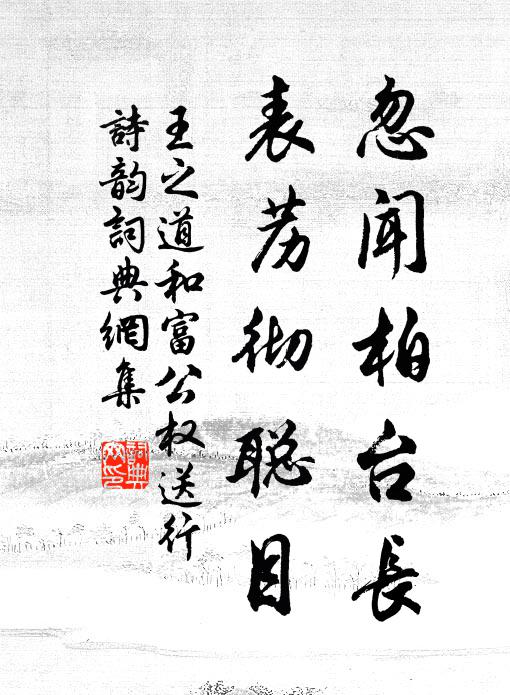 忽闻柏台長
表荐彻聪目
王之道和富公权送行
詩韵詞典網集